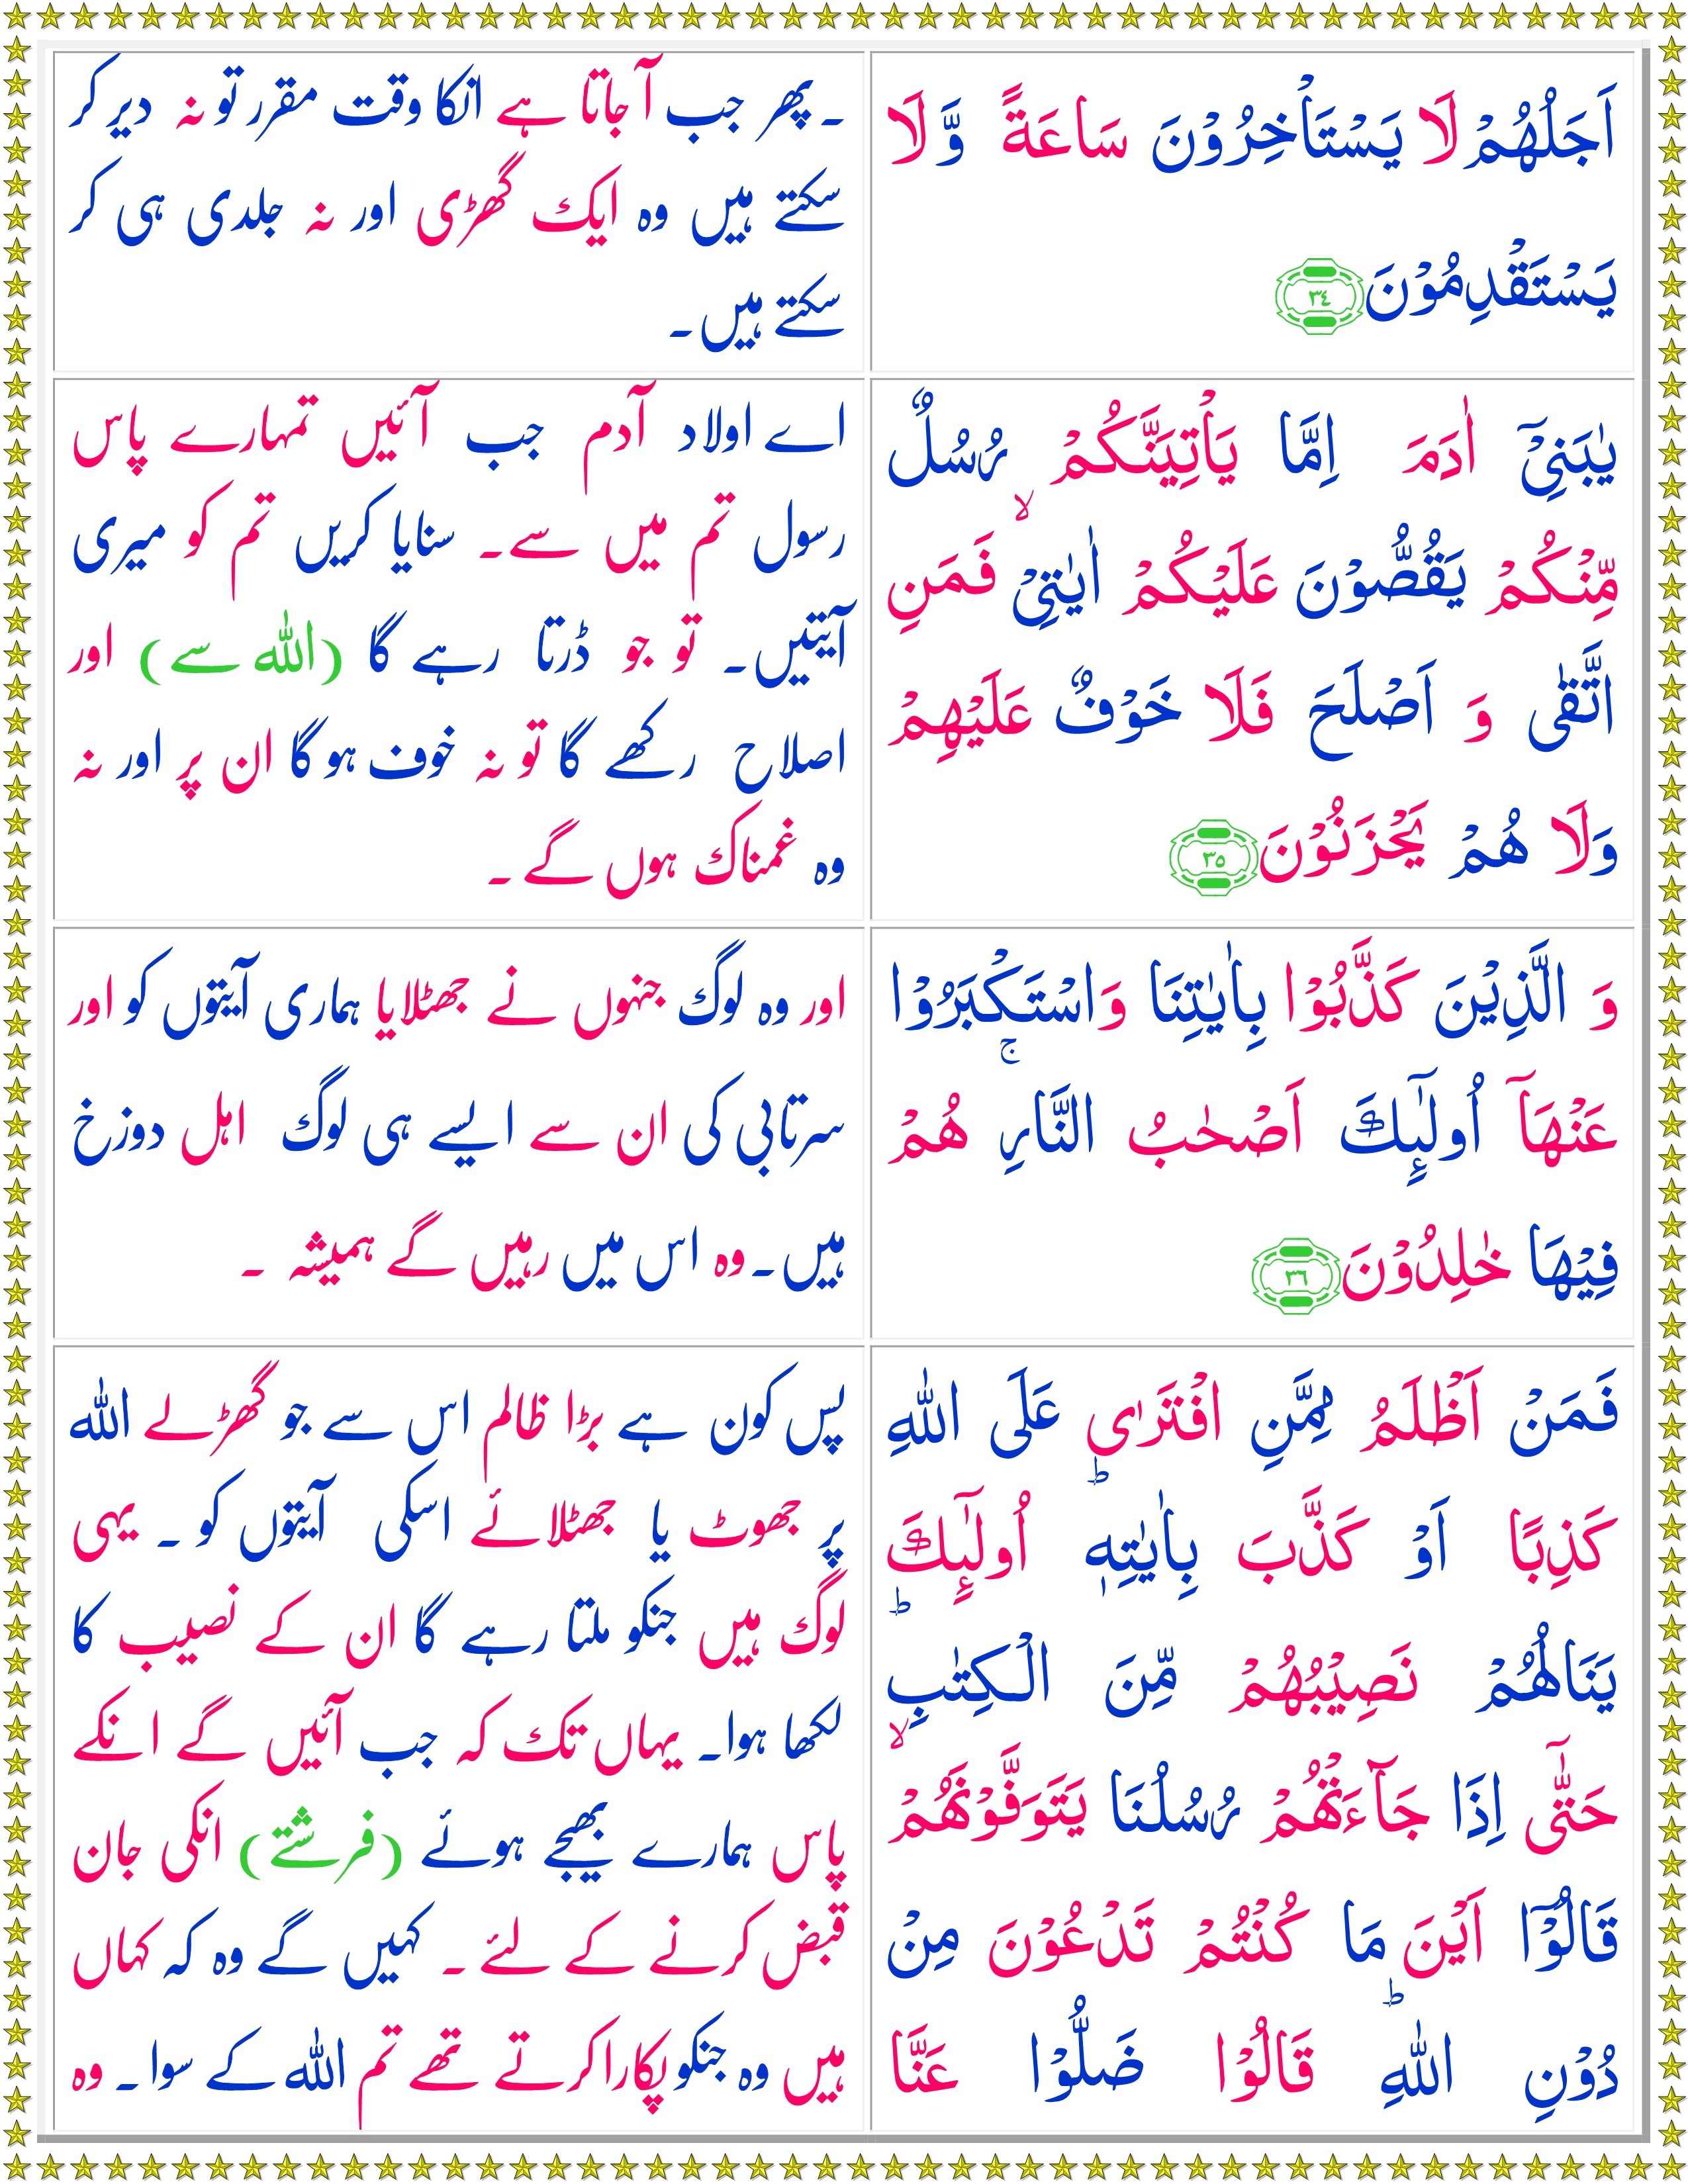 اَجَلُهُمْ لَا يَسْتَاْخِرُوْنَ سَاعَةً وَّ لَا
يَسْتَقْدِمُوْنَ ٣٤
۔ پھر جب آ جاتا ہے انکا وقت مقرر تو نہ دیر کر
سکتے ہیں وہ ایک گھڑی اور نہ جلدی ہی کر
سکتے ہیں۔
يٰبَنِيْۤ اٰدَمَ اِمَّا يَاْتِيَنَّكُمْ رُسُلٌ
مِّنْكُمْ يَقُصُّوْنَ عَلَيْكُمْ اٰيٰتِيْ ۙ فَمَنِ
اتَّقٰى وَ اَصْلَحَ فَلَا خَوْفٌ عَلَيْهِمْ
وَلَا هُمْ يَحْزَنُوْنَ ٣٥
اے اولاد آدم جب آئیں تمہارے پاس
رسول تم میں سے۔ سنایا کریں تم کو میری
آیتیں۔ تو جو ڈرتا رہے گا (اللہ سے) اور
اصلاح رکھے گا تو نہ خوف ہو گا ان پر اور نہ
وہ غمناک ہوں گے۔
وَ الَّذِيْنَ كَذَّبُوْا بِاٰيٰتِنَا وَاسْتَكْبَرُوْا
عَنْهَاۤ اُولٰٓئِكَ اَصْحٰبُ النَّارِ ۚ هُمْ
فِيْهَا خٰلِدُوْنَ ٣٦
اور وہ لوگ جنہوں نے جھٹلایا ہماری آیتوں کو اور
سرتابی کی ان سے ایسے ہی لوگ اہل دوزخ
ہیں۔ وہ اس میں رہیں گے ہمیشہ ۔
فَمَنْ اَظْلَمُ مِمَّنِ افْتَرٰى عَلَى اللّٰهِ
كَذِبًا اَوْ كَذَّبَ بِاٰيٰتِهٖ ؕ اُولٰٓئِكَ
يَنَالُهُمْ نَصِيْبُهُمْ مِّنَ الْكِتٰبِ ؕ
حَتّٰۤى اِذَا جَآءَتْهُمْ رُسُلُنَا يَتَوَفَّوْنَهُمْ ۙ
قَالُوْۤا اَيْنَ مَا كُنْتُمْ تَدْعُوْنَ مِنْ
دُوْنِ اللّٰهِ ؕ قَالُوْا ضَلُّوْا عَنَّا
پس کون ہے بڑا ظالم اس سے جو گھڑلے اللہ
پر جھوٹ یا جھٹلائے اسکی آیتوں کو ۔ یہی
لوگ ہیں جنکو ملتا رہے گا ان کے نصیب کا
لکھا ہوا۔ یہاں تک کہ جب آئیں گے انکے
پاس ہمارے بھیجے ہوئے (فرشتے) انکی جان
قبض کرنے کے لئے ۔ کہیں گے وہ کہ کہاں
ہیں وہ جنکو پکارا کرتے تھے تم اللہ کے سوا۔ وہ